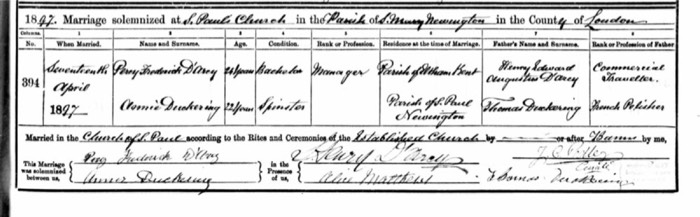 1897. Marriage solemnized at St. Paul's Church in the Parish of St. Mary Newington in the County of London
Columns.
No. When Married. Name and Surname. Age. Condition. Rank or Profession. Residence at the time of Marriage. Father's Name and Surname. Rank or Profession of Father.
394
Seventeenth April 1897 Percy Frederick D'Arcy Bachelor Manager Parish of Eltham Kent Henry Edward Augustus D'Arcy Commercial Traveller.
Annie Duckering 22 years Spinster Parish of St. Paul Newington Thomas Duckering French Polisher
Married in the Church of St. Paul according to the Rites and Ceremonies of the Established Church by or after Banns by me,
This Marriage was solemnized between us, Percy Frederick D'Arcy in the Presence of us, Henry D'Arcy Curate
Annie Duckering Alice Matthews Thomas Duckering